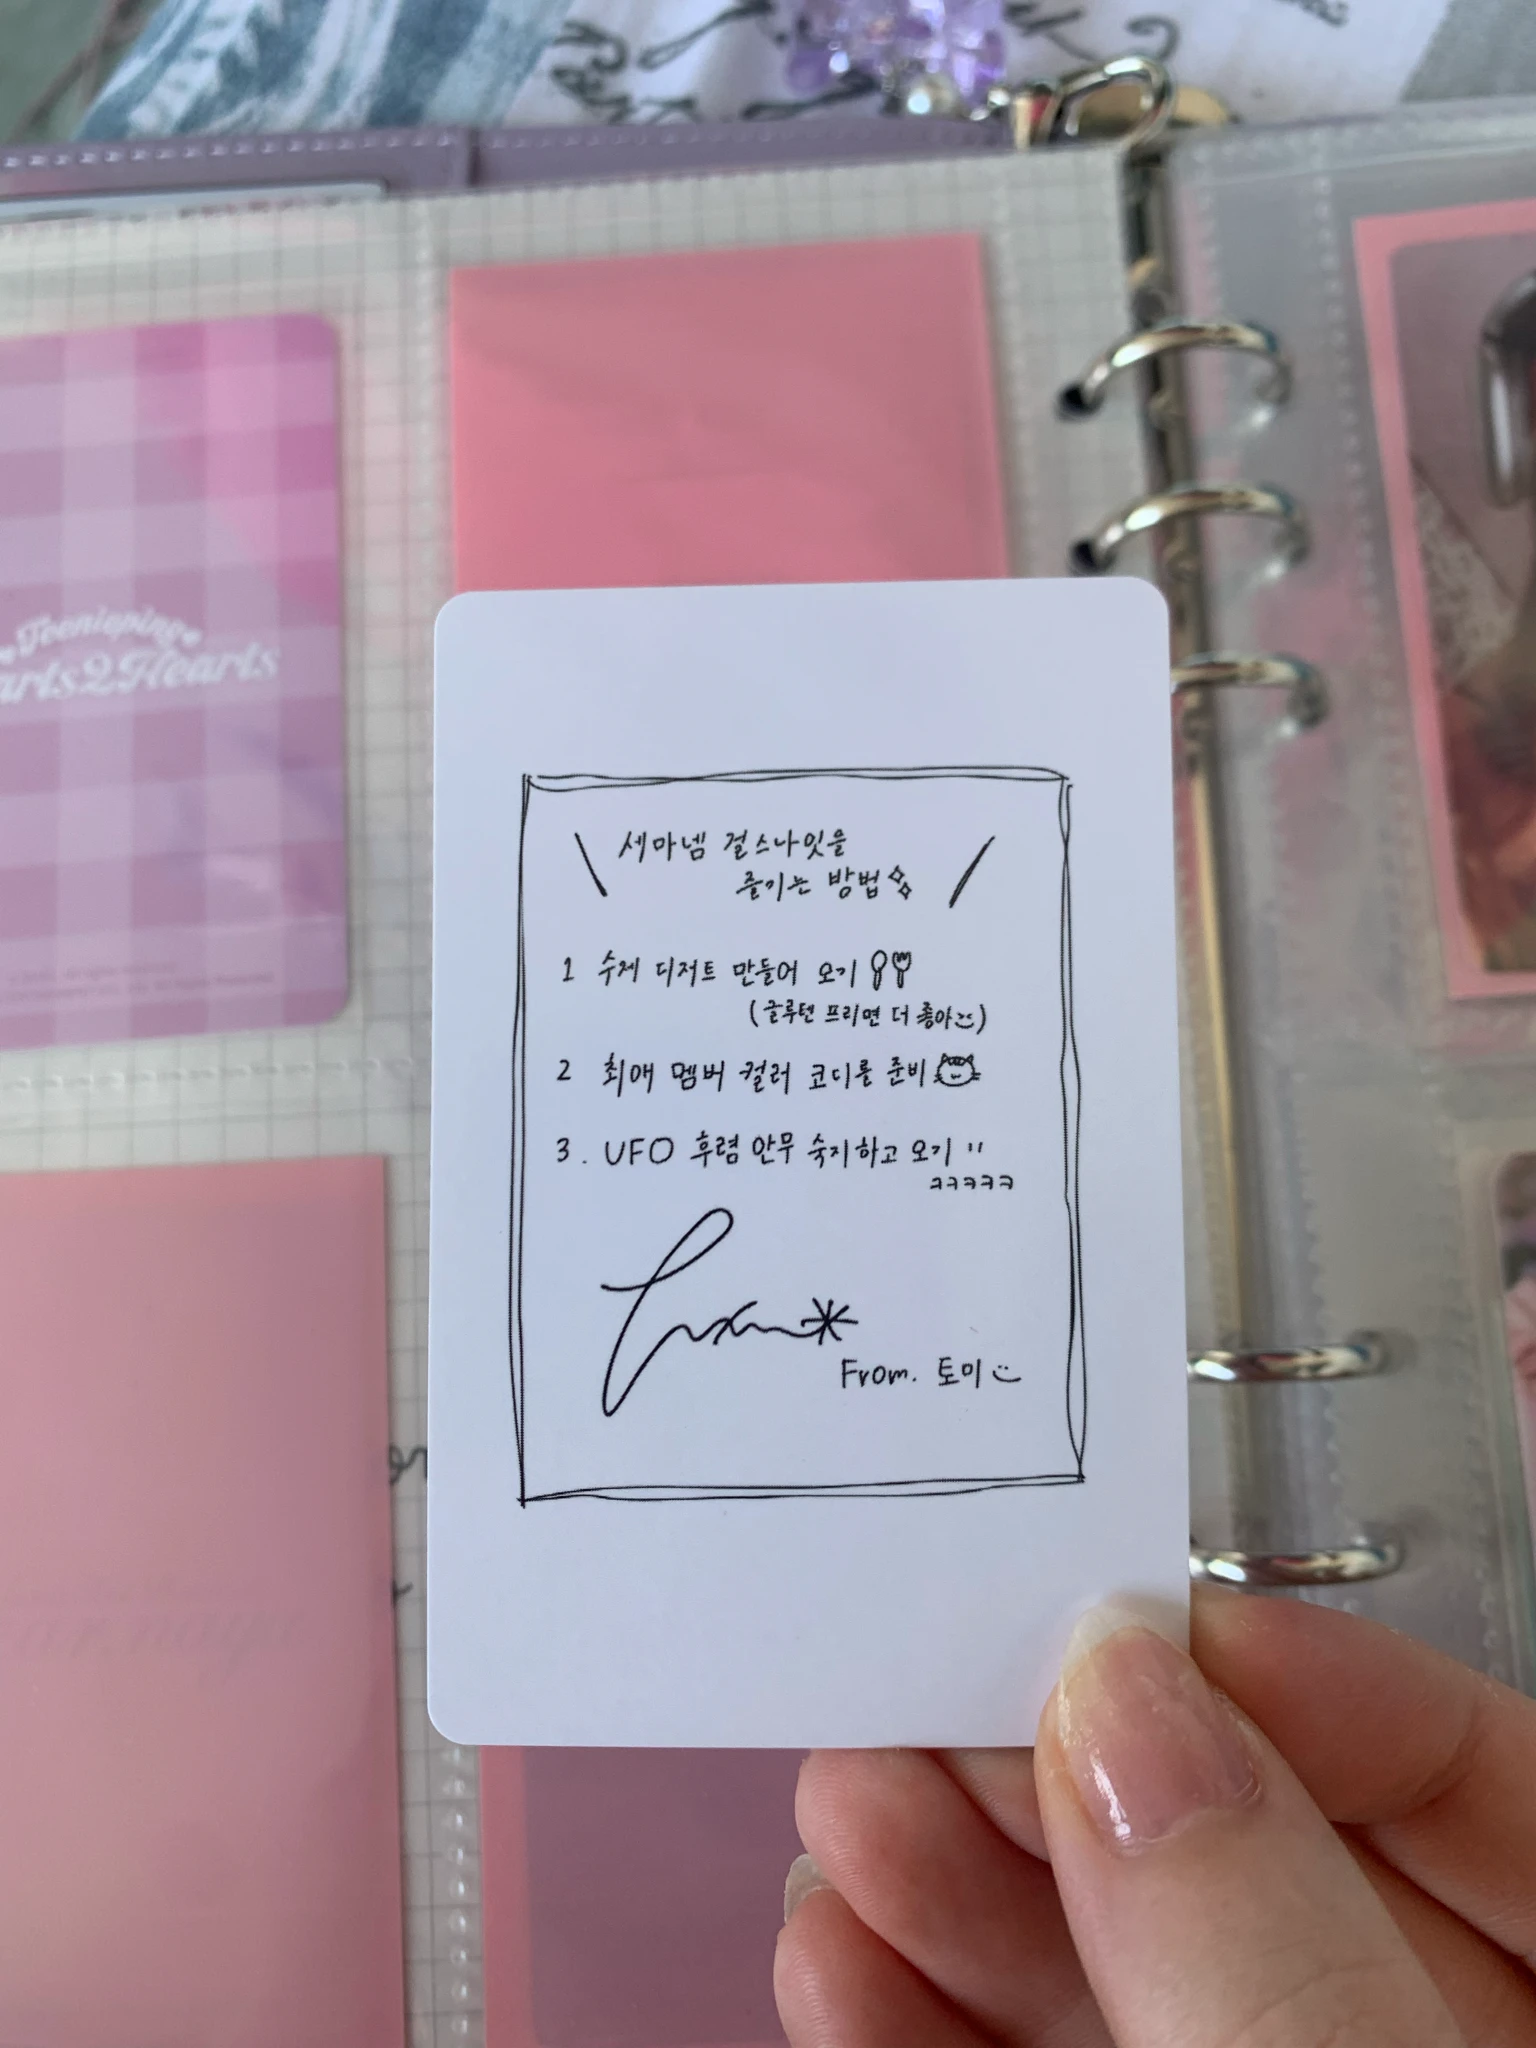 Teenieping
arts2Hearts
세마넴 걸스나잇을
즐기는 방법
1 수제 디저트 만들어 오기
(글루텐 프리면 더 좋아)
2 최애 멤버 컬러 코디를 준비
3. UFO 후렴 안무 숙지하고 오기
ㅋㅋㅋㅋㅋ
From. 토미